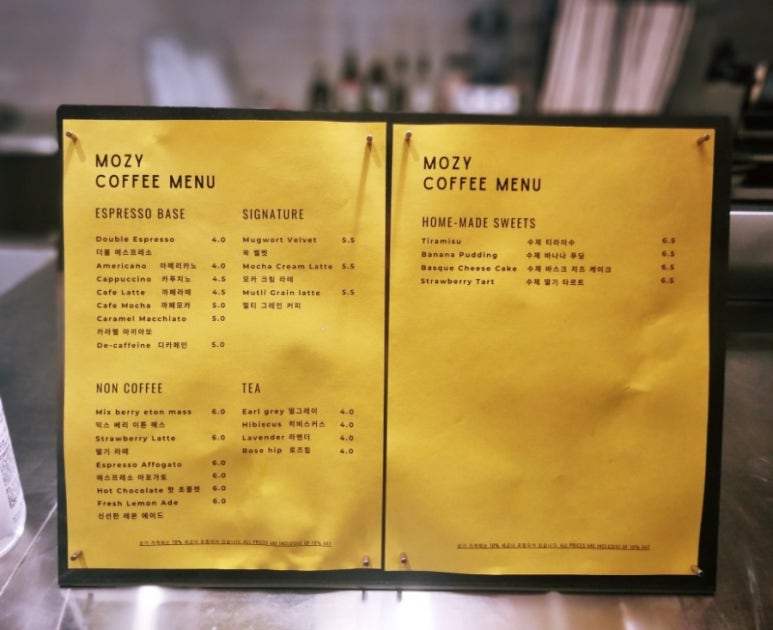 MOZY
COFFEE MENU
ESPRESSO BASE
Double Espresso 4.0
더블 에스프레소
Americano 아메리카노 4.0
Cappuccino 카푸치노 4.5
Cafe Latte 까페라떼 4.5
Cafe Mocha 까페모카 5.0
Caramel Macchiato 5.0
카라멜 마끼아또
De-caffeine 디카페인 5.0
SIGNATURE
Mugwort Velvet 5.5
쑥 벨벳
Mocha Cream Latte 5.5
모카 크림 라떼
Mutli Grain latte 5.5
멀티 그레인 커피
NON COFFEE
Mix berry eton mass 6.0
믹스 베리 이튼 메스
Strawberry Latte 6.0
딸기 라떼
Espresso Affogato 6.0
에스프레소 아포가토 6.0
Hot Chocolate 핫 초콜렛 6.0
Fresh Lemon Ade 6.0
신선한 레몬 에이드
TEA
Earl grey 얼그레이 4.0
Hibiscus 히비스커스 4.0
Lavender 라벤더 4.0
Rose hip 로즈힙 4.0
상기 가격에는 10% 세금이 포함되어 있습니다. ALL PRICES ARE INCLUSIVE OF 10% VAT
MOZY
COFFEE MENU
HOME-MADE SWEETS
Tiramisu 수제 티라미수 6.5
Banana Pudding 수제 바나나 푸딩 6.5
Basque Cheese Cake 수제 바스크 치즈 케이크 6.5
Strawberry Tart 수제 딸기 타르트 6.5
상기 가격에는 10% 세금이 포함되어 있습니다. ALL PRICES ARE INCLUSIVE OF 10% VAT